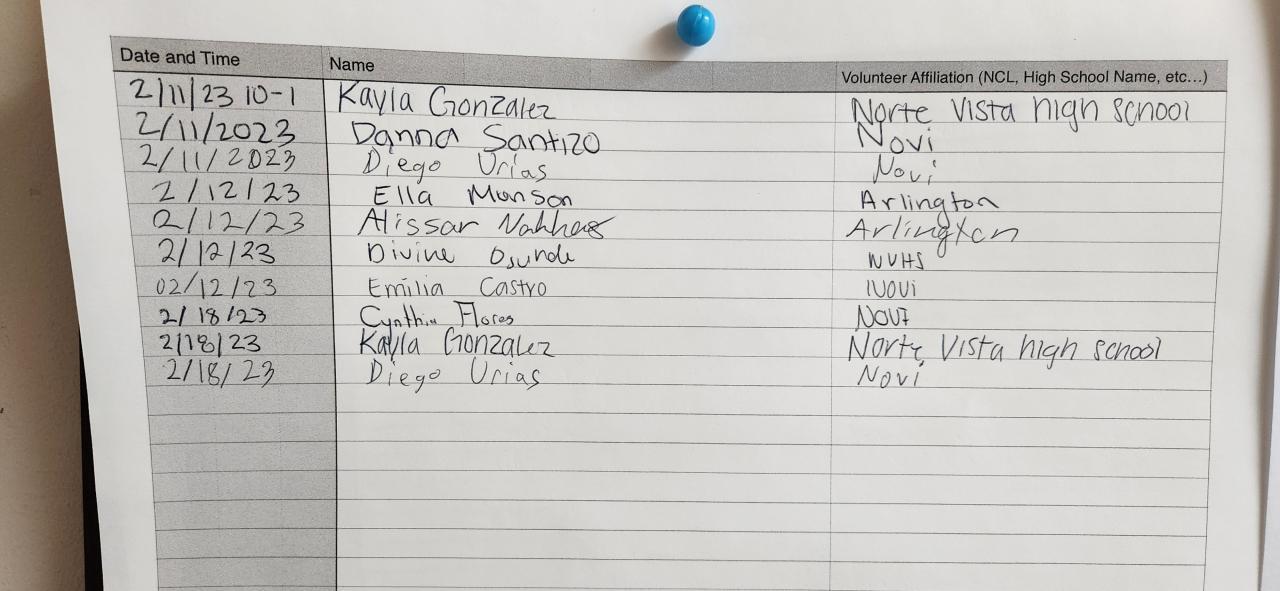 Date and Time Name Volunteer Affiliation (NCL, High School Name, etc...)
2/11/23 10-1 Kayla Gonzalez Norte Vista high school
2/11/2023 Danna Santizo Novi
2/11/2023 Diego Urias Novi
2/12/23 Ella Munson Arlington
2/12/23 Alissar Nakhas Arlington
2/12/23 Divine Osunde NVHS
02/12/23 Emilia Castro NOVi
2/18/23 Cynthia Flores NOVI
2/18/23 Kayla Gonzalez Norte Vista high school
2/18/23 Diego Urias Novi